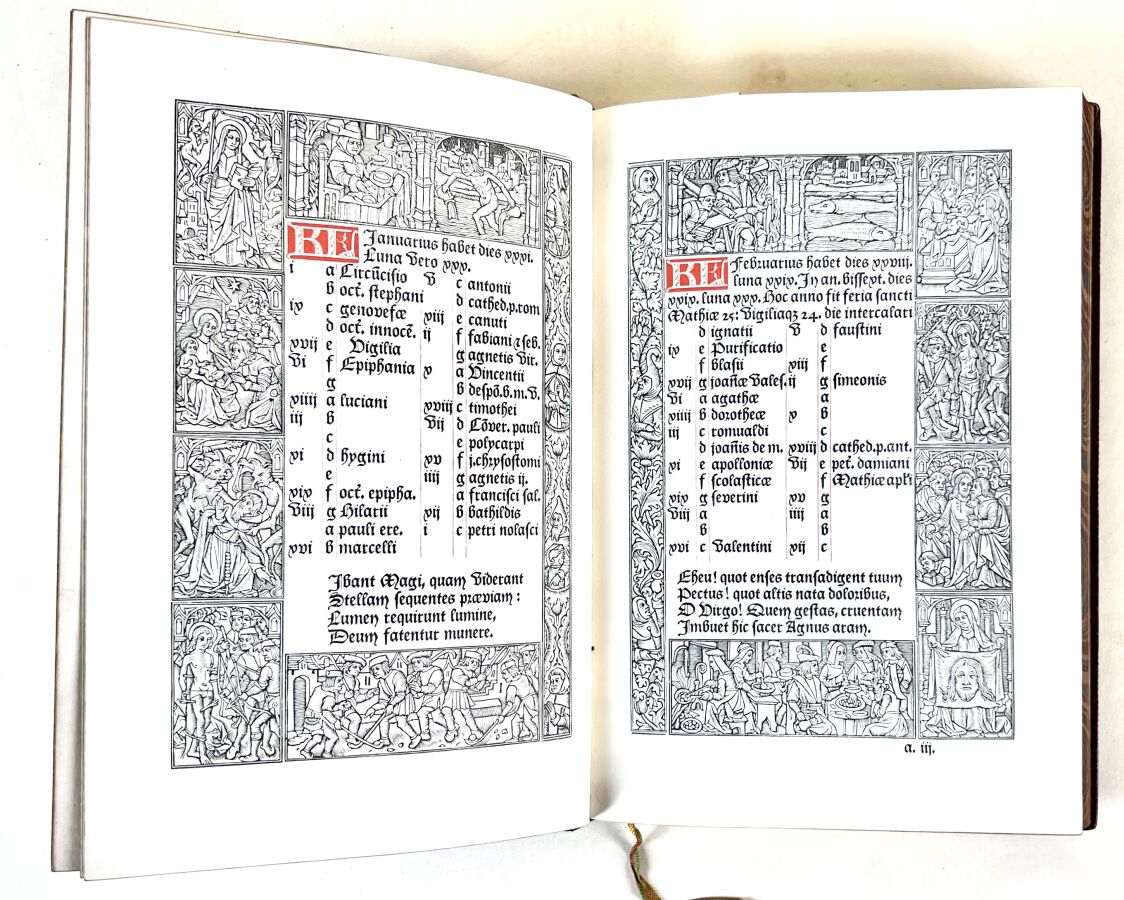 KL Januarius habet dies xxxi.
Luna Vero xxx.
i a Circũcisio
b oct. stephani
ix c genovefæ
d oct. innocẽ.
xvij e Vigilia
vi f Epiphania
g
xviiij a luciani
iij b
c
xi d hygini
e
xix f oct. epipha.
viij g Hilarii
a pauli ere.
xvi b marcelli
v c antonii
d cathed.p.rom
xiij e canuti
ij f fabiani & seb.
g agnetis vir.
x a Vincentii
b despõ.b.m.v.
xviij c timothei
vij d Cõver. pauli
e polycarpi
xv f j.chrysostomi
iiij g agnetis ij.
a francisci sal.
xij b bathildis
i c petri nolasci
Ibant Magi, quam viderant
Stellam sequentes præviam :
Lumen requirunt lumine,
Deum fatentur munere.
KL Februarius habet dies xxviij.
luna xxix. In an. bissext. dies
xxix. luna xxx. Hoc anno fit feria sancti
Mathiæ 25: Vigiliaqz 24. die intercalari
d ignatii
ix e Purificatio
f blasii
xvij g joanæ Vales.
vi a agathæ
xviiij b dorotheæ
iij c romualdi
d joañis de m.
xi e apolloniæ
f scolasticæ
xix g severini
viij a
b
xvi c Valentini
v d faustini
e
xiij f
ij g simeonis
a
x b
c
xviij d cathed.p.ant.
vij e pet. damiani
f Mathiæ apli
xv g
iiij a
b
xij c
Eheu! quot enses transadigent tuum
Pectus! quot altis nata doloribus,
O Virgo! Quem gestas, cruentam
Imbuet hic sacer Agnus aram.
a. iij.